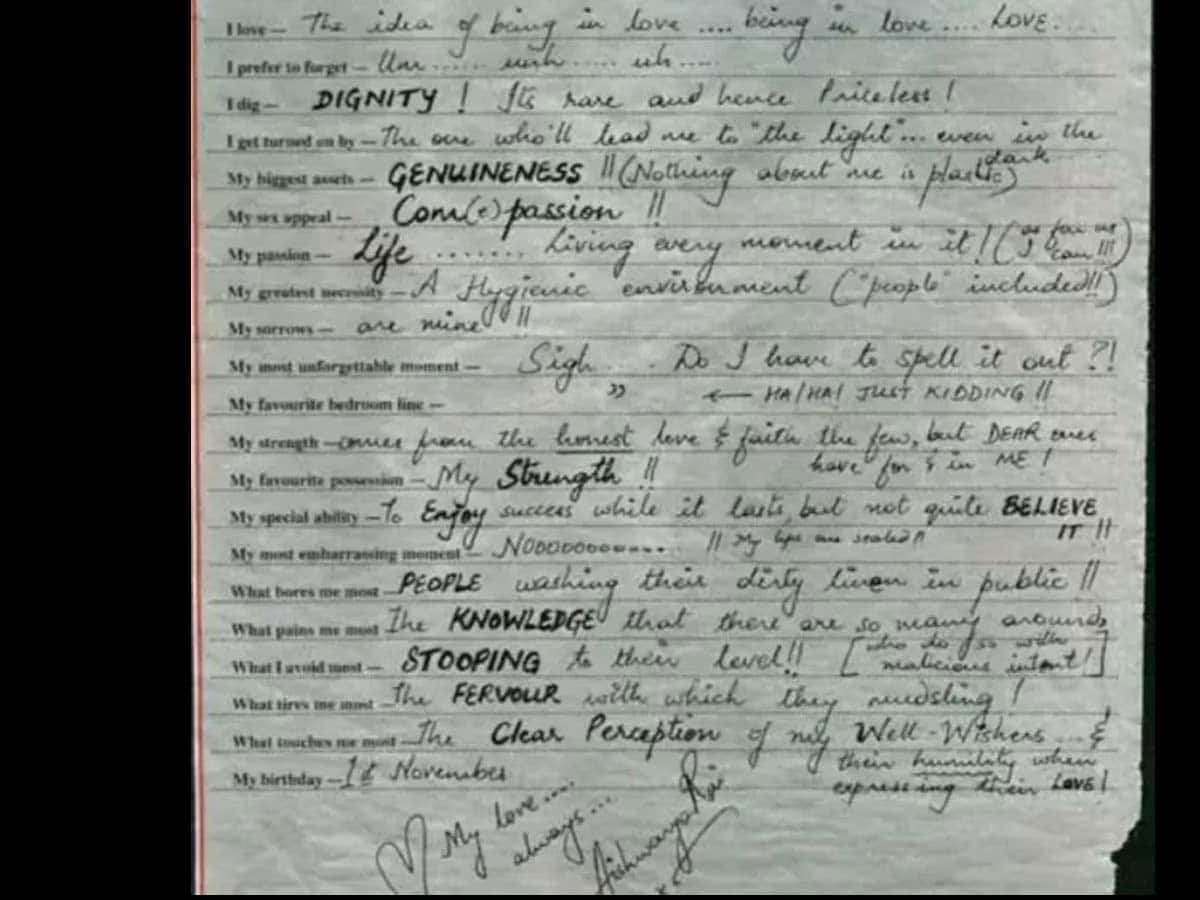 I love — The idea of being in love .... being in love .... LOVE....
I prefer to forget — Um ...... umh ..... uh .....
I dig — DIGNITY ! Its rare and hence Priceless !
I get turned on by — The one who'll lead me to "the light"... even in the dark
My biggest assets — GENUINENESS !! (Nothing about me is plastic)
My sex appeal — Com(e)passion !!
My passion — Life ....... Living every moment in it ! (as far as I can !!!)
My greatest necessity — A Hygienic environment ("people" included!!)
My sorrows — are mine !!
My most unforgettable moment — Sigh . . Do I have to spell it out ?!
My favourite bedroom line — " ← HA/HA! JUST KIDDING !!
My strength — comes from the honest love & faith the few, but DEAR ones
have for & in ME !
My favourite possession — My Strength !!
My special ability — To Enjoy success while it lasts, but not quite BELIEVE
IT !!
My most embarrassing moment — NOooooooo.... !! My lips are sealed !!
What bores me most — PEOPLE washing their dirty linen in public !!
What pains me most The KNOWLEDGE that there are so many around
[who do so with malicious intent!]
What I avoid most — STOOPING to their level!!
What tires me most — The FERVOUR with which they mudsling !
What touches me most — The Clear Perception of my Well-Wishers ... &
their humility when
expressing their LOVE !
My birthday — 1st November
My love ....
always ...
Aishwarya Rai